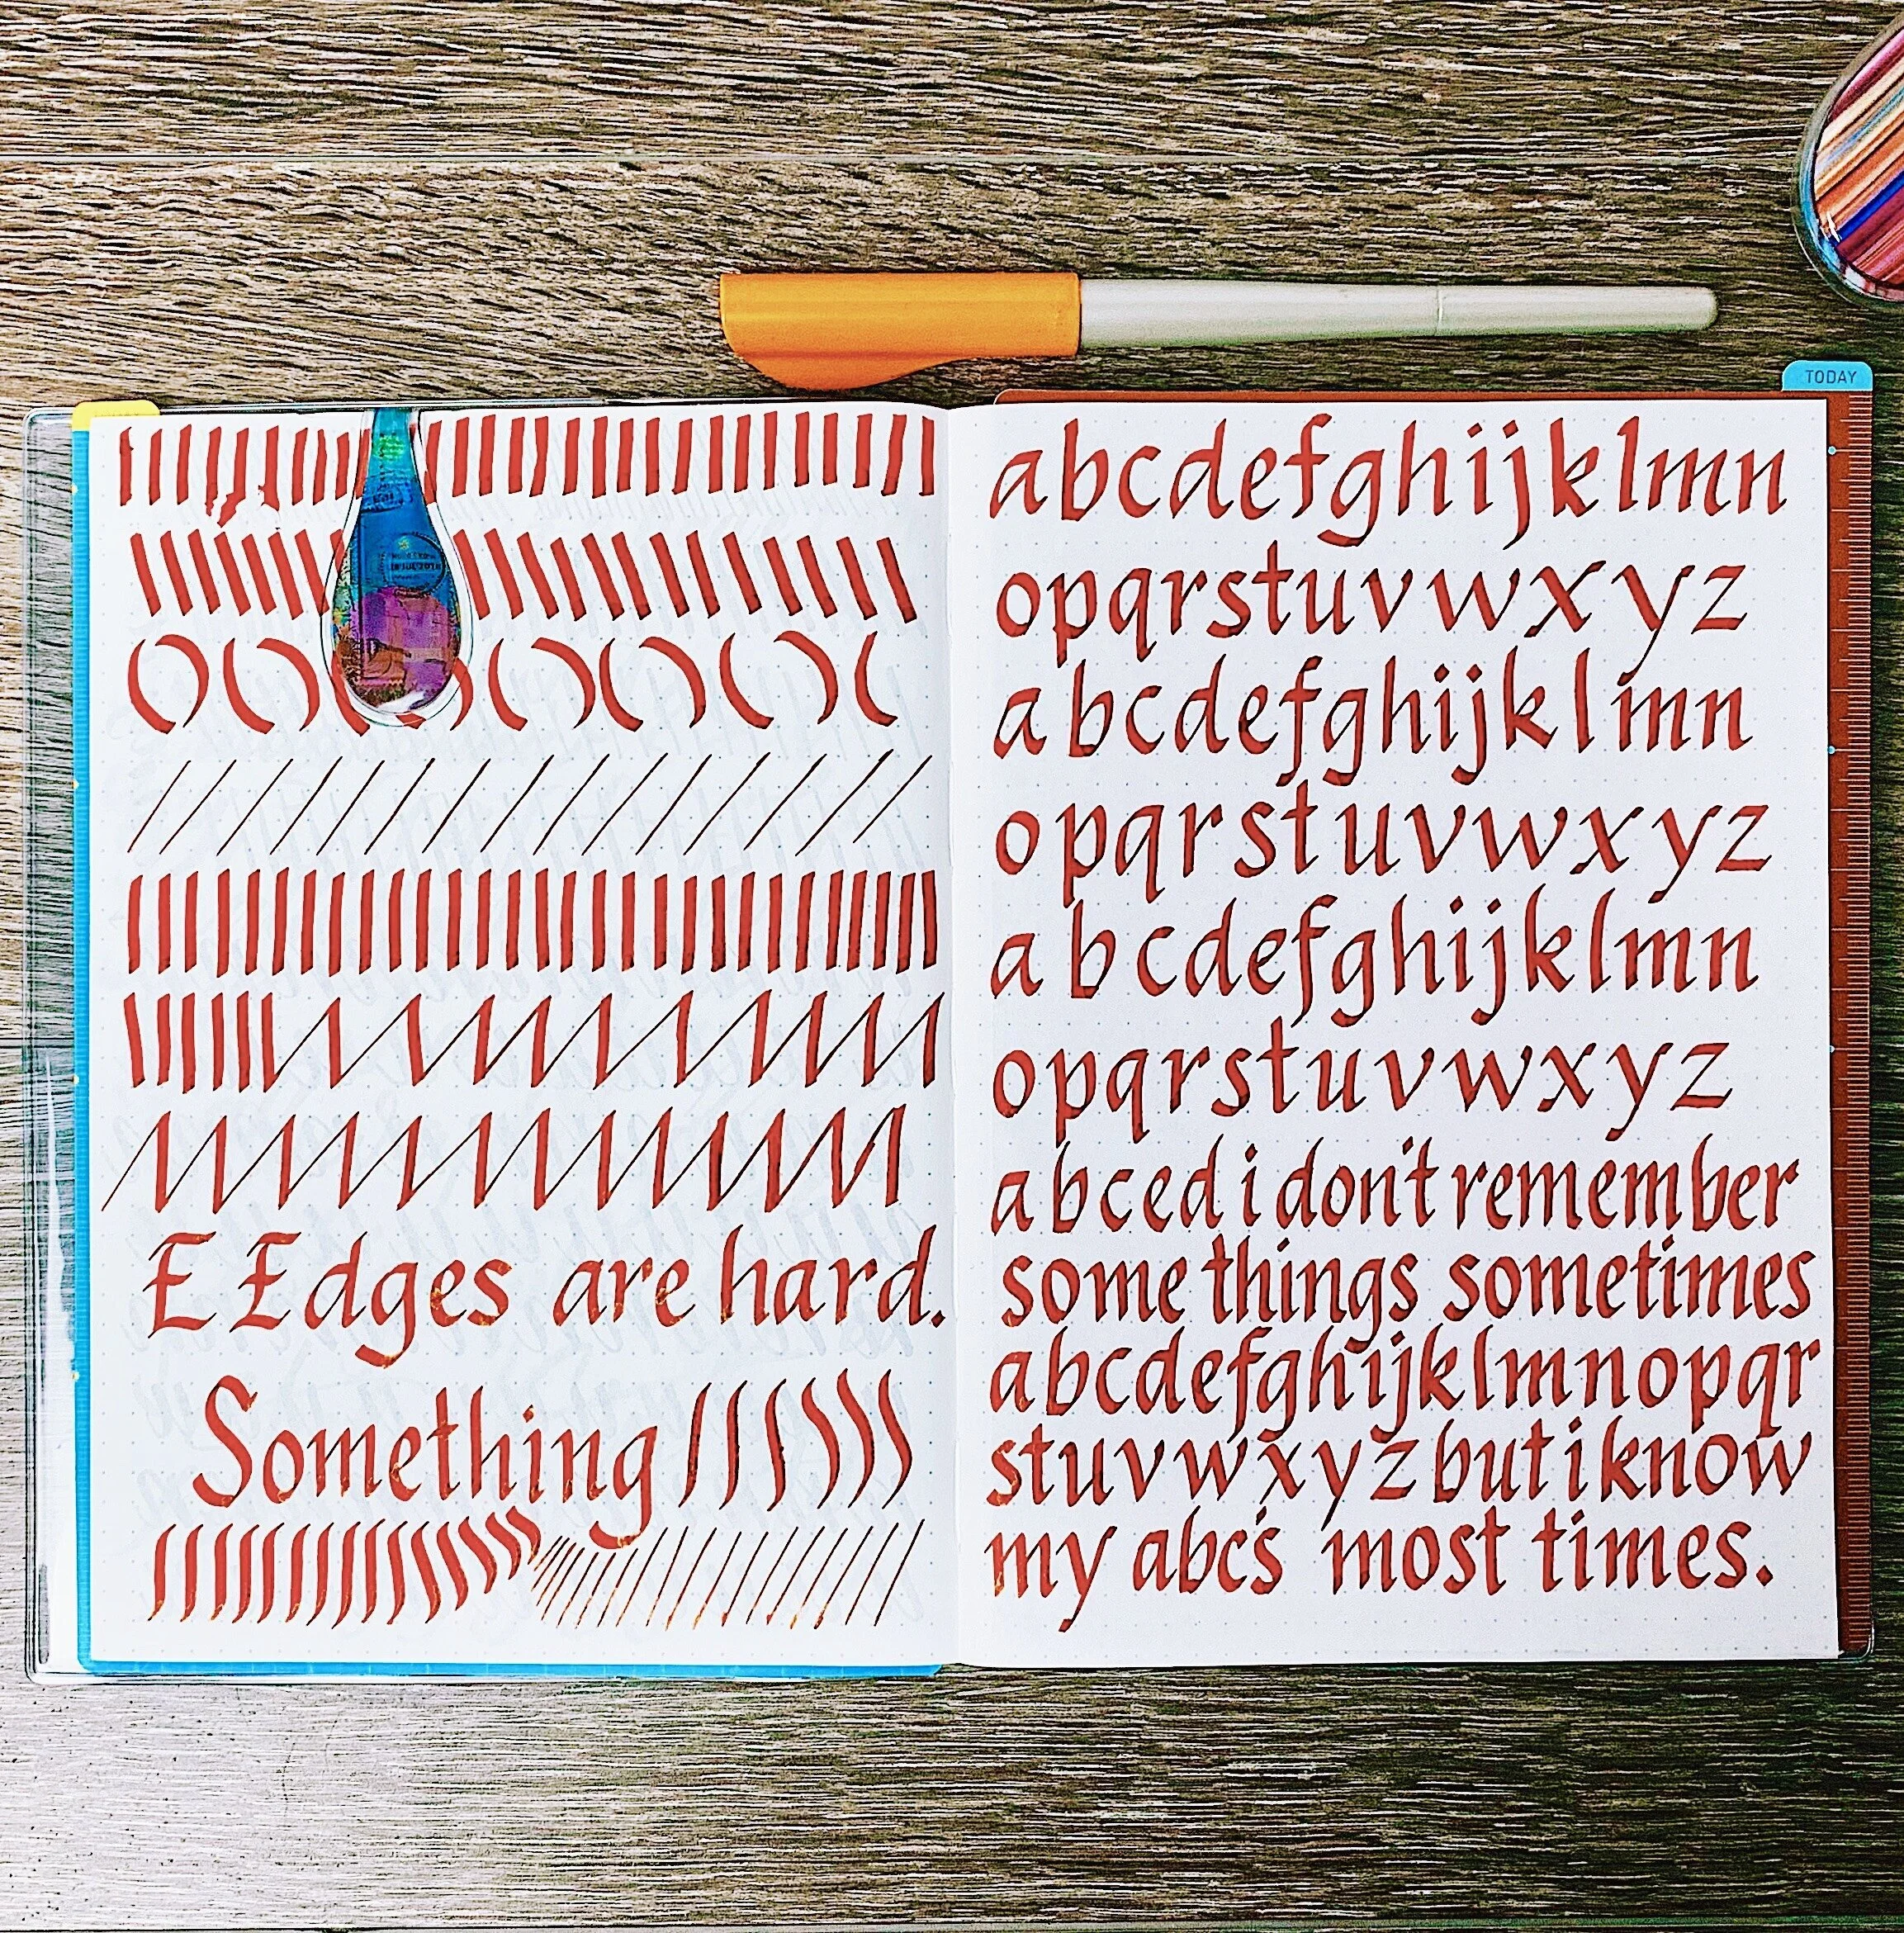 TODAY
E Edges are hard.
Something
abcdefghijklmn
opqrstuvwxyz
abcdefghijklmn
opqrstuvwxyz
abcdefghijklmn
opqrstuvwxyz
abced i don't remember
some things sometimes
abcdefghijklmnopqr
stuvwxyz but i know
my abc's most times.